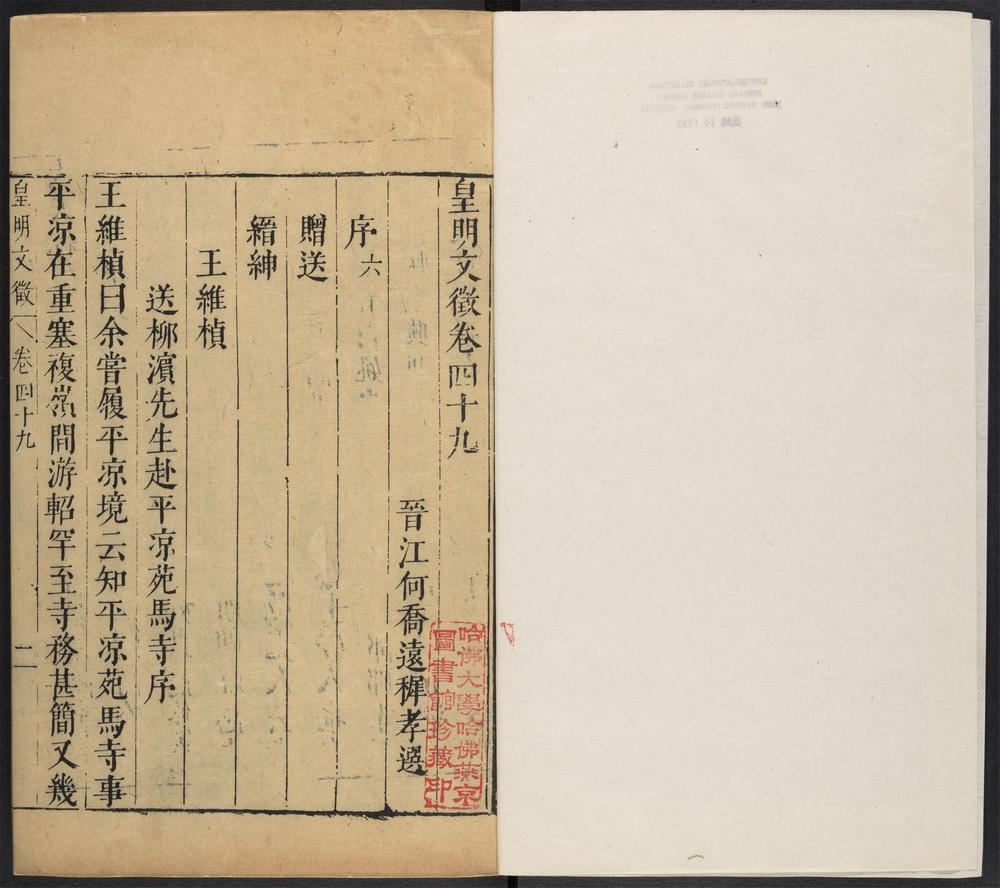 皇明文徵卷四十九
晉江何喬遠穉孝選
序六
贈送
縉紳
王維楨
送柳濱先生赴平凉苑馬寺序
王維楨曰余嘗履平凉境云知平凉苑馬寺事
平凉在重塞複嶺間游軺罕至寺務甚簡又幾
皇明文徵 卷四十九 一
哈佛大學哈佛燕京
圖書館珍藏印